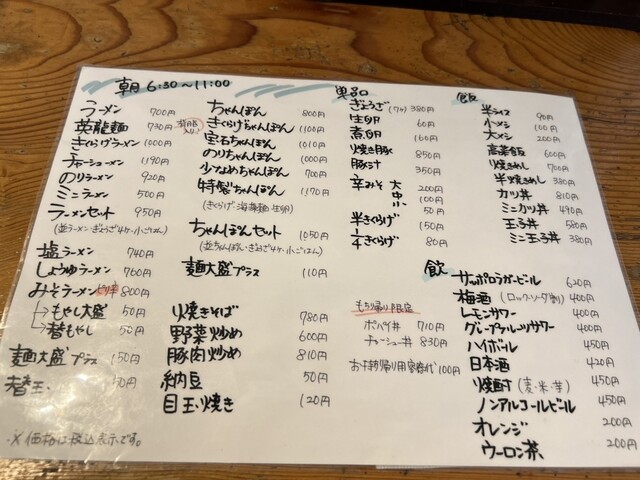 朝 6:30～11:00
ラーメン 700円
英龍麺 730円
きくらげラーメン 1000円
チャーシューメン 1190円
のりラーメン 920円
ミニラーメン 500円
ラーメンセット 950円
(並ラーメン・ぎょうざ4ケ・小ごはん)
塩ラーメン 740円
しょうゆラーメン 760円
みそラーメン ピリ辛 800円
→もやし大盛 50円
→替もやし 50円
麺大盛プラス 150円
替玉
※価格は税込表示です。
ちゃんぽん 800円
きくらげちゃんぽん 1100円
宝石ちゃんぽん 1010円
のりちゃんぽん 1000円
少なめちゃんぽん 700円
特製ちゃんぽん 1170円
(きくらげ・海藻麺・生卵)
ちゃんぽんセット 1050円
(並ちゃんぽん・ぎょうざ4ケ・小ごはん)
麺大盛プラス 110円
焼きそば 780円
野菜炒め 600円
豚肉炒め 810円
納豆 50円
目玉焼き 120円
単品
ぎょうざ(7ケ) 380円
生卵 60円
煮卵 160円
焼き豚 850円
豚汁 350円
辛みそ 大 200円
中 100円
小 50円
半きくらげ 150円
1/4きくらげ 80円
もち帰り限定
ポパイ丼 710円
チャーシュー丼 830円
お持帰り用容器代 100円
飯
半ライス 90円
小メシ 100円
大メシ 200円
高菜飯 600円
焼きめし 700円
半焼きめし 380円
カツ丼 810円
ミニカツ丼 490円
玉子丼 580円
ミニ玉子丼 380円
飲
サッポロラガービール 620円
梅酒(ロック・ソーダ割) 400円
レモンサワー 400円
グレープフルーツサワー 400円
ハイボール 450円
日本酒 420円
焼酎(麦・米・芋) 450円
ノンアルコールビール 450円
オレンジ 200円
ウーロン茶 200円